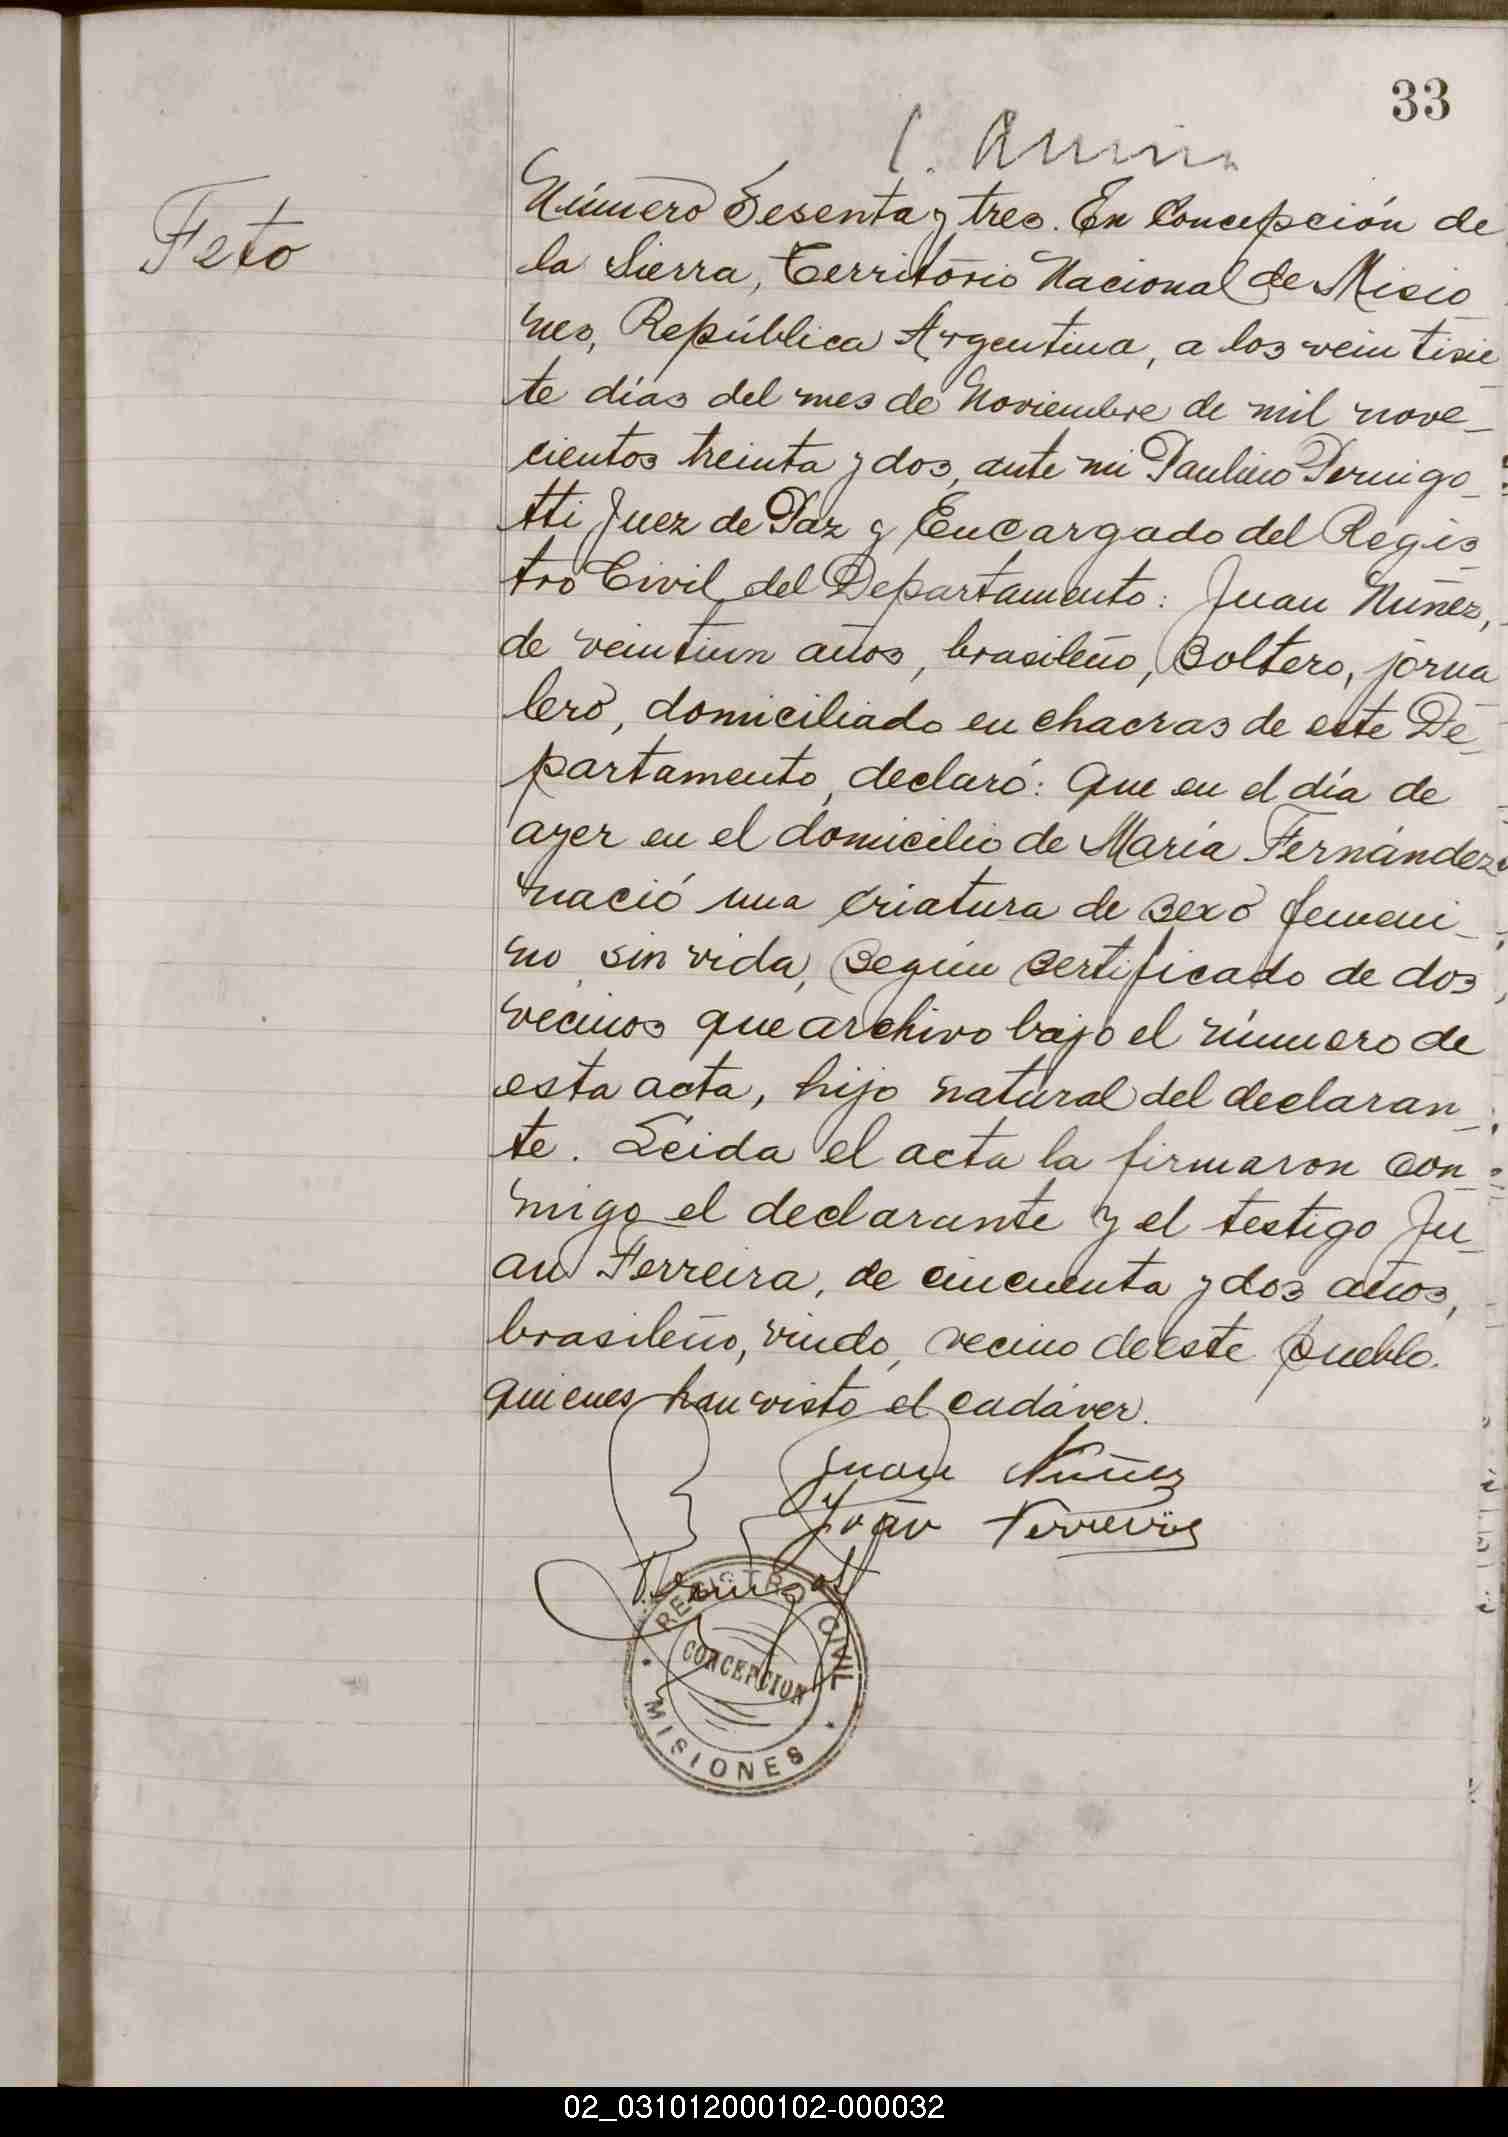 33
Feto
Número Sesenta y tres. En Concepción de
la Sierra, Territorio Nacional de Misio
nes, República Argentina, a los veintisie
te días del mes de Noviembre de mil nove_
cientos treinta y dos, ante mi Paulino Pernigo_
tti Juez de Paz y Encargado del Regis
tro Civil del Departamento: Juan Nuñez,
de veintiun años, brasileño, soltero, jorna
lero, domiciliado en chacras de este De_
partamento, declaró: Que en el día de
ayer en el domicilio de María Fernández
nació una criatura de sexo femeni_
no sin vida, según certificado de dos
vecinos que archivo bajo el número de
esta acta, hijo natural del declaran_
te. Leida el acta la firmaron con_
migo el declarante y el testigo Ju_
an Ferreira, de cincuenta y dos años,
brasileño, viudo, vecino de este pueblo.
quienes han visto el cadáver.
Juan Nuñez
João
REGISTRO CIVIL
CONCEPCION
MISIONES
02_031012000102-000032